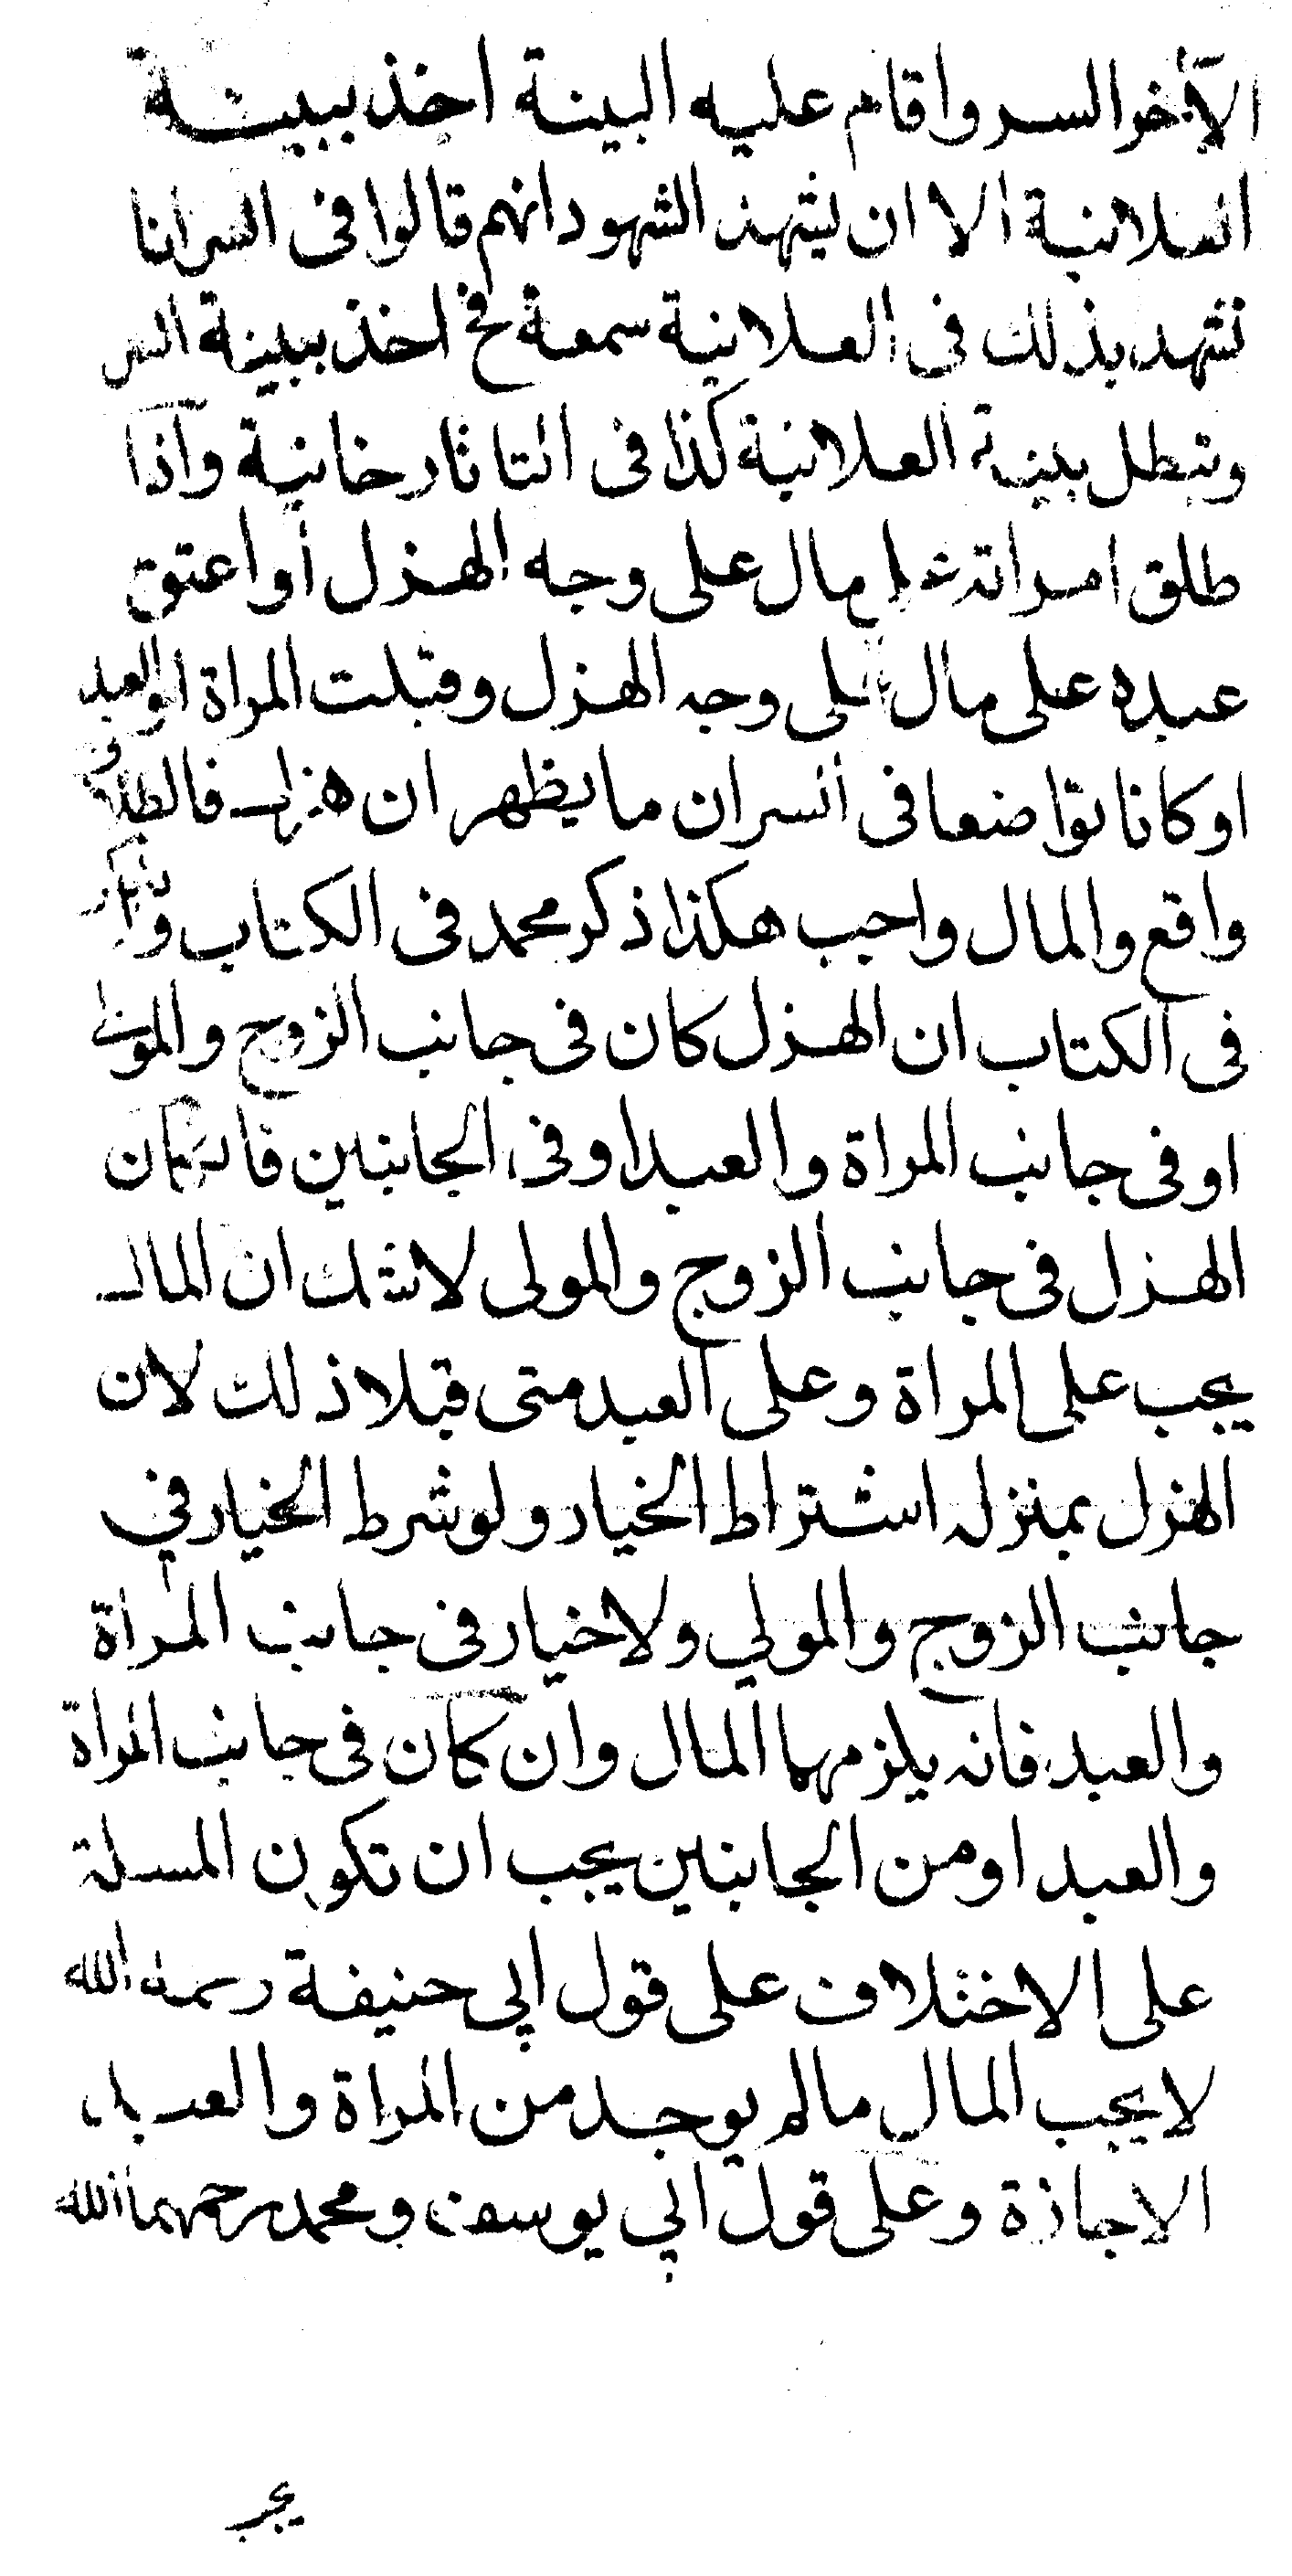 الآخر السر واقام عليه البينة اخذ ببينة
العلانية الا ان يشهد الشهود انهم قالوا فى السر انا
نشهد بذلك فى العلانية سمعة فح اخذ ببينة السر
وتبطل بينة العلانية كذا فى التاتارخانية واذا
طلق امراته على مال على وجه الهزل أو اعتق
عبده على مال على وجه الهزل وقبلت المراة او العبد
او كانا تواضعا فى السر ان ما يظهر ان هزل فالطلاق
واقع والمال واجب هكذا ذكر محمد فى الكتاب ولم يذكر
فى الكتاب ان الهزل كان فى جانب الزوج والمولى
او فى جانب المراة والعبد او فى الجانبين فان كان
الهزل فى جانب الزوج والمولى لا شك ان المال
يجب على المراة وعلى العبد متى قبلا ذلك لان
الهزل بمنزله اشتراط الخيار ولو شرط الخيار في
جانب الزوج والمولي ولا خيار فى جانب المراة
والعبد فانه يلزمهما المال وان كان فى جانب المراة
والعبد او من الجانبين يجب ان تكون المسلة
على الاختلاف على قول ابى حنيفة رحمه الله
لا يجب المال مالم يوجد من المراة والعبد
الاجازة وعلى قول ابي يوسف ومحمد رحمهما الله
يجب